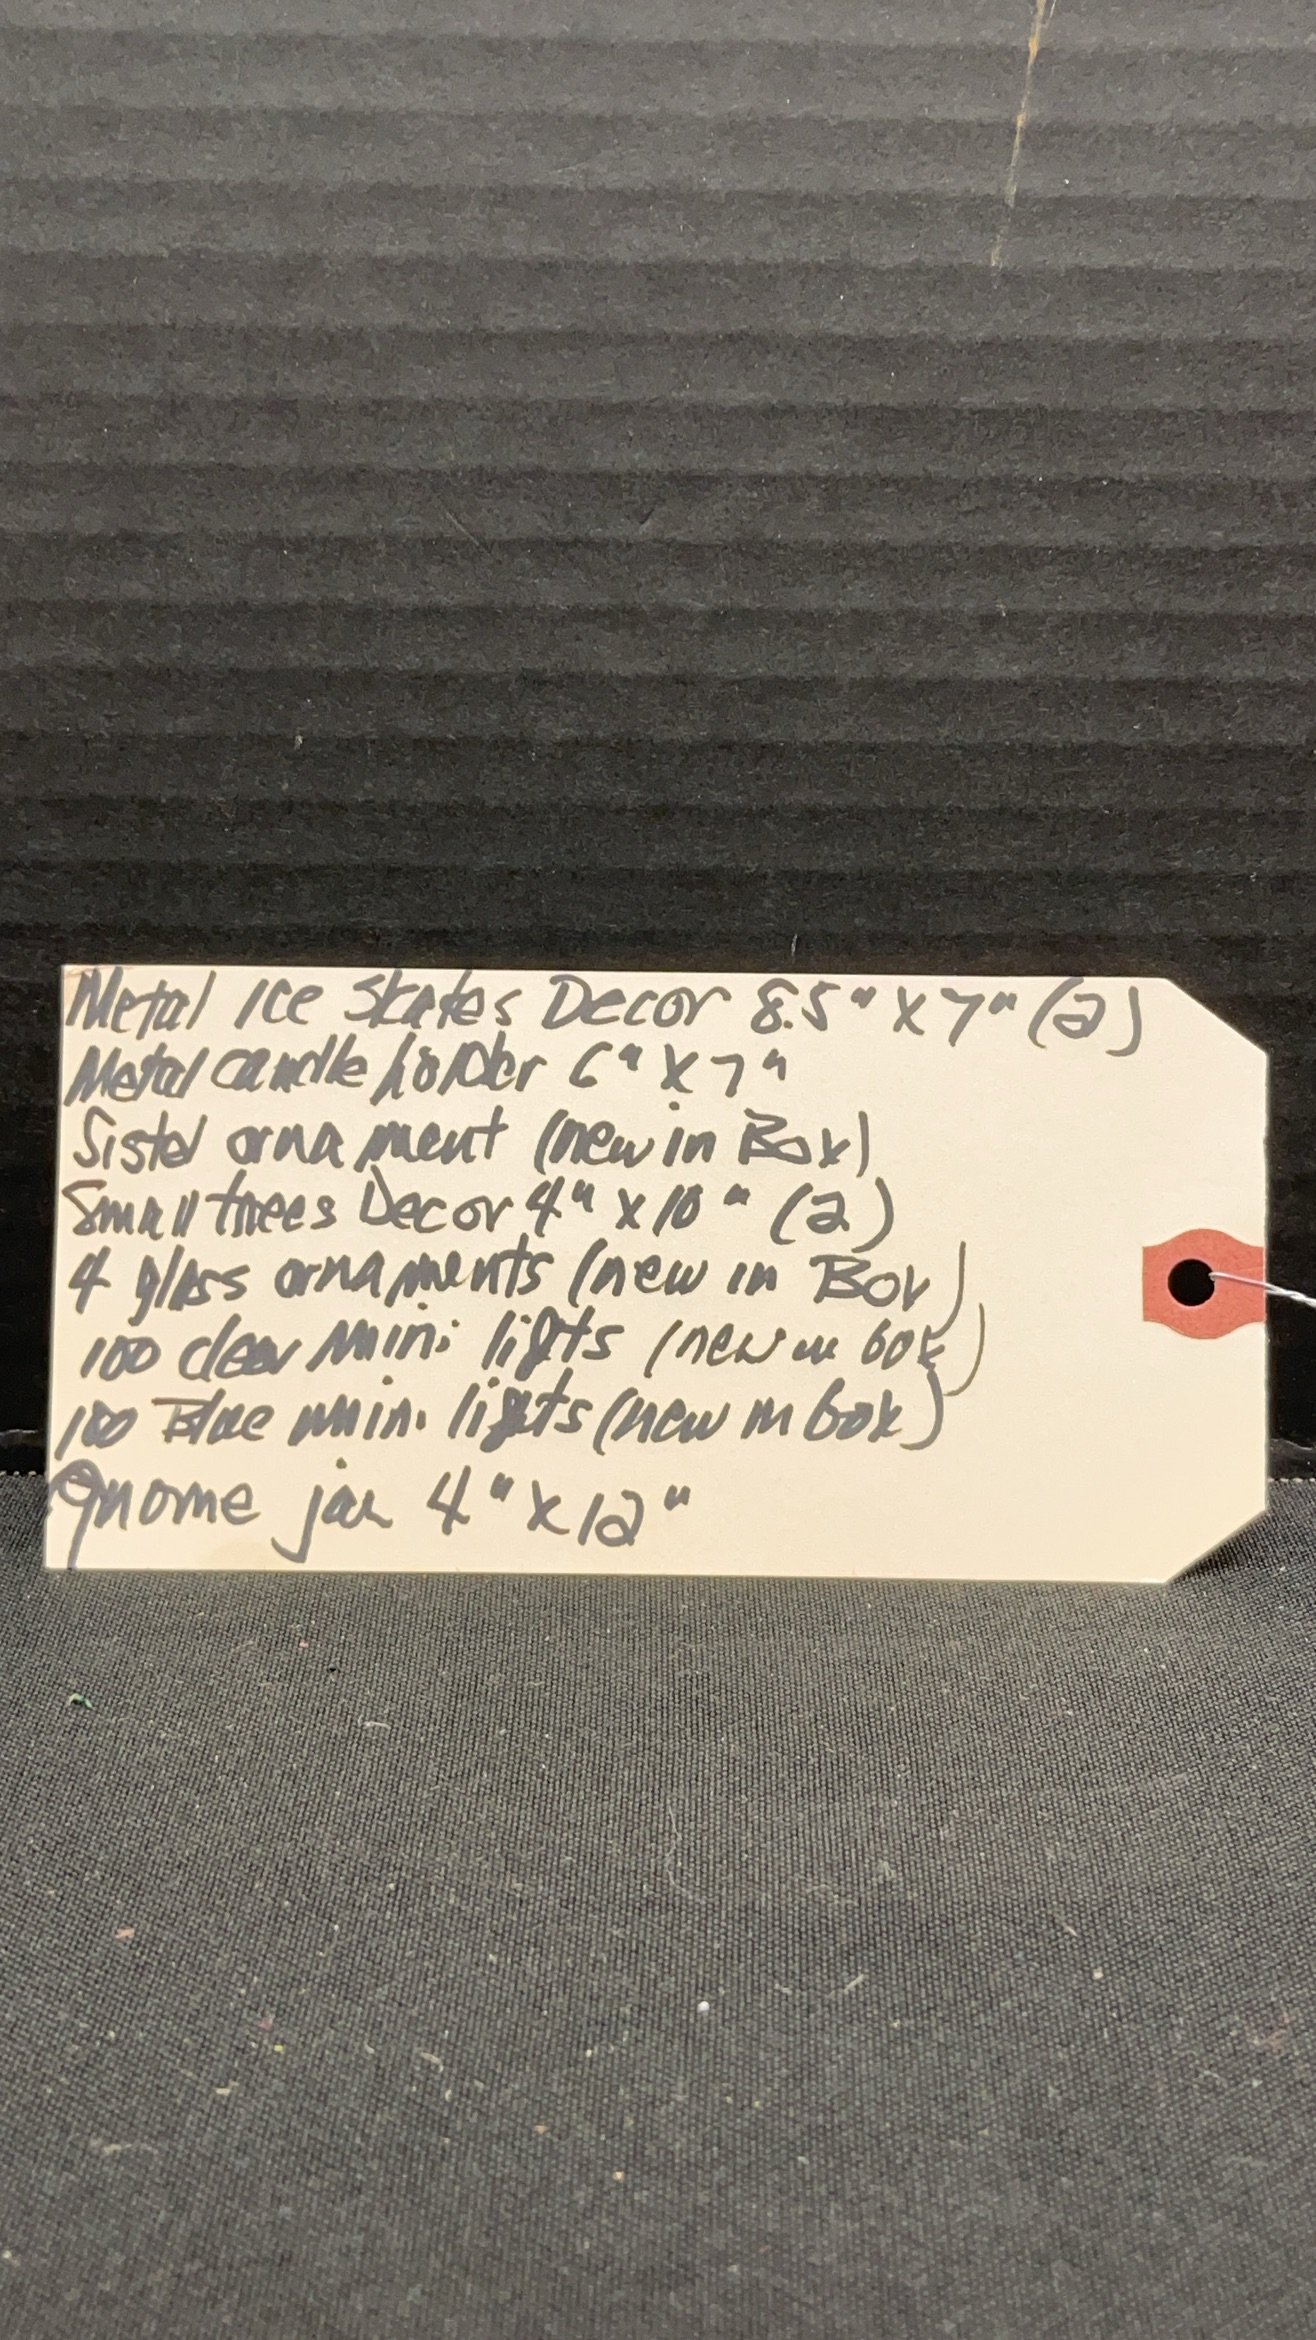 Metal Ice Skates Decor 8.5" x 7" (2)
Metal candle holder 6" x 7"
Sister ornament (new in Box)
Small trees Decor 4" x 10" (2)
4 glass ornaments (new in Box)
100 clear mini lights (new in box)
100 Blue mini lights (new in box)
Gnome jar 4" x 12"